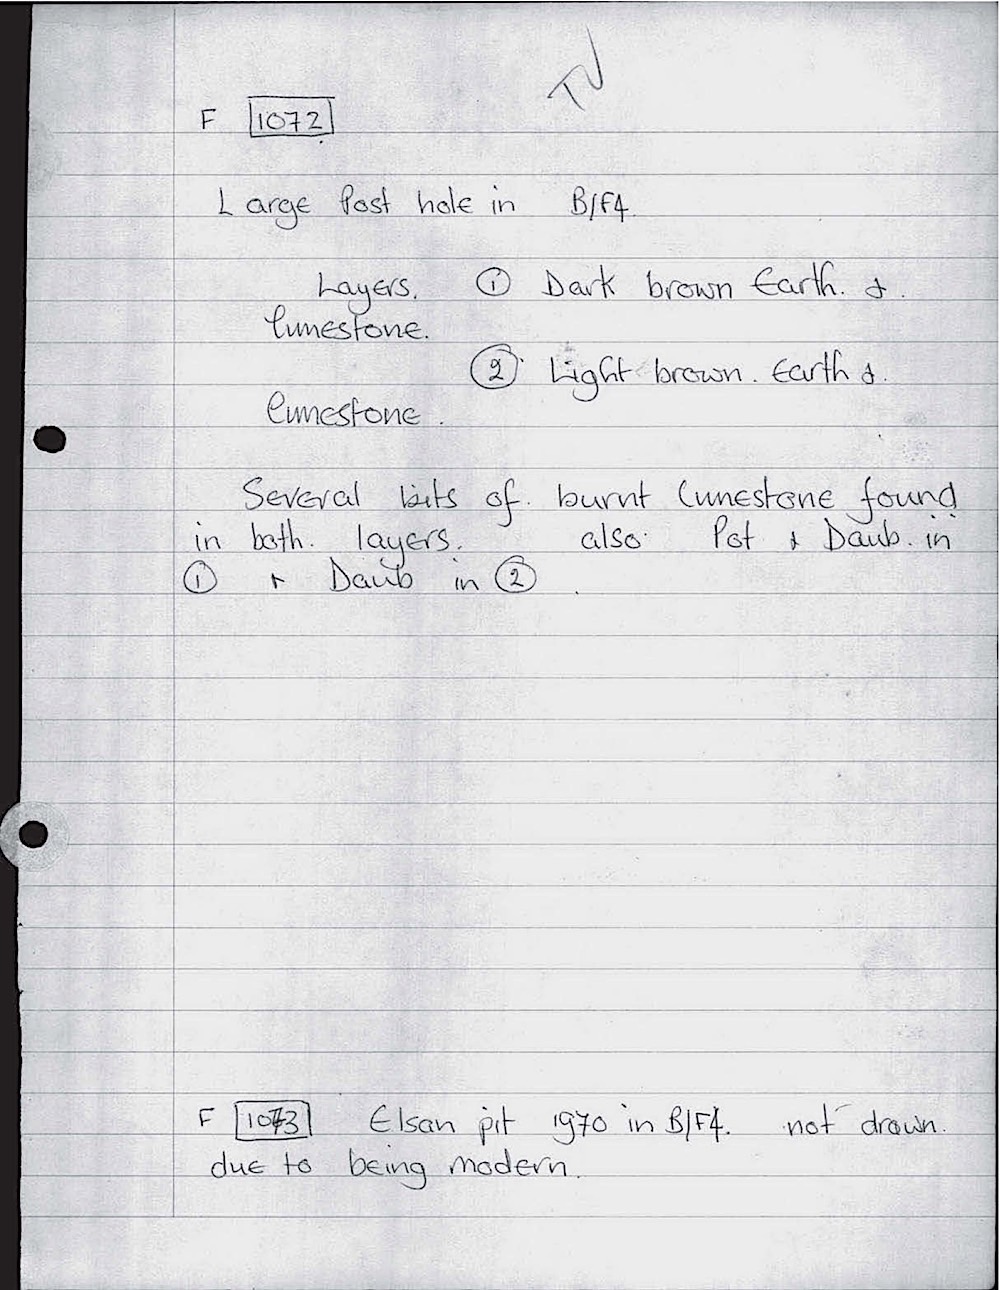 TV
F 1072
Large Post hole in B/F4.
Layers. ① Dark brown Earth. &.
limestone.
② Light brown. Earth &.
limestone.
Several bits of. burnt limestone found
in both. layers. also Pot & Daub. in
① + Daub in ②.
F 1073 Elsan pit 1970 in B/F4. not drawn.
due to being modern.